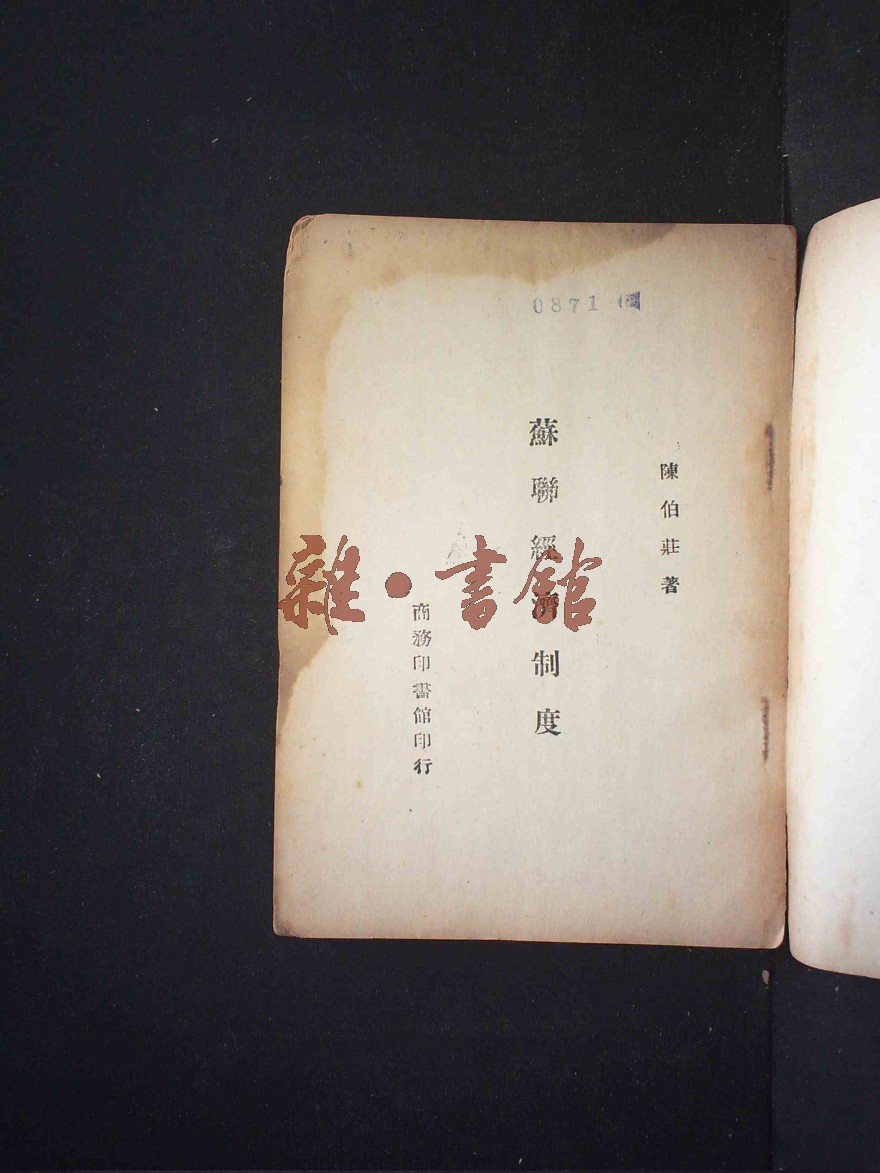 0871
陳伯莊著
蘇聯經濟制度
商務印書館印行
雜·書館